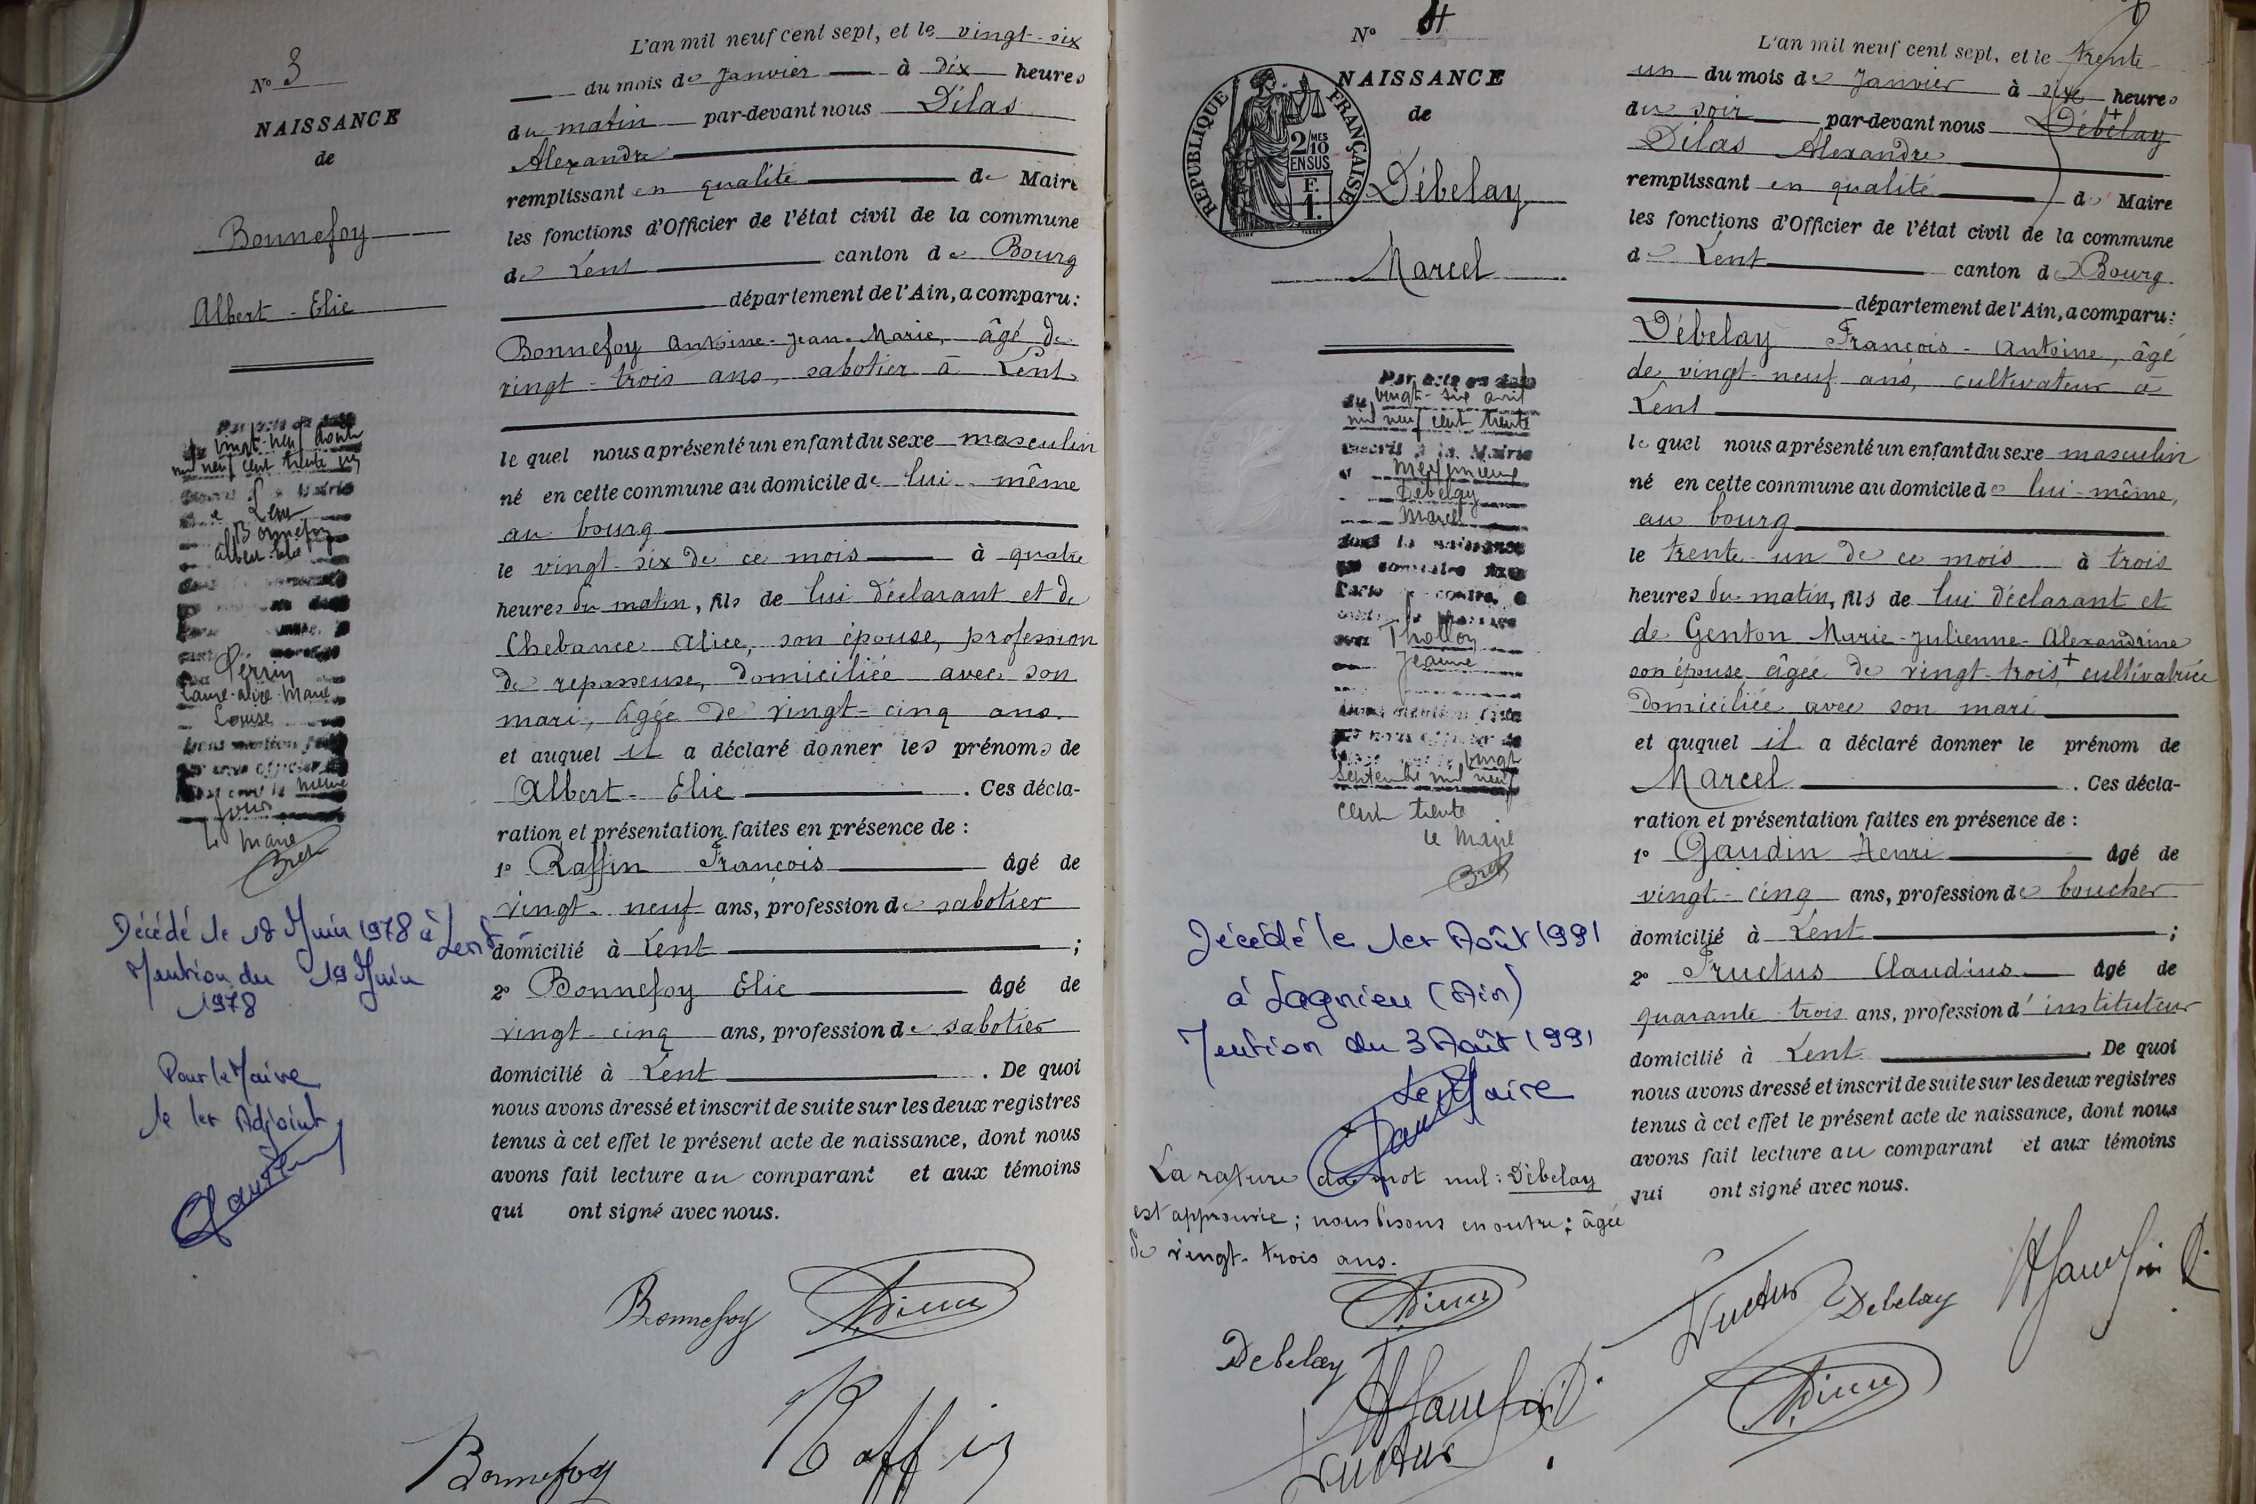 N° 3
NAISSANCE
de
Bonnefoy
Albert-Elie
Par acte en date
du vingt-neuf
mil neuf cent trente
Mairie
Lent
Bonnefoy
Albert-Elie
Perrin
Laure-Alice-Marie
Louise
même
jour
Le Maire
Décédé le 18 Juin 1978 à Lent
Mention du 19 Juin
1978
Pour le Maire
le 1er Adjoint
L'an mil neuf cent sept, et le vingt-six
du mois de Janvier à dix heures
du matin par-devant nous Dilas
Alexandre
remplissant en qualité de Maire
les fonctions d'Officier de l'état civil de la commune
de Lent canton de Bourg
département de l'Ain, a comparu:
Bonnefoy Antoine-Jean-Marie, âgé de
vingt-trois ans, sabotier à Lent
lequel nous a présenté un enfant du sexe masculin
né en cette commune au domicile de lui-même
au bourg
le vingt-six de ce mois à quatre
heures du matin, fils de lui déclarant et de
Chebance Alice, son épouse, profession
de repasseuse, domiciliée avec son
mari, âgée de vingt-cinq ans.
et auquel il a déclaré donner les prénoms de
Albert-Elie. Ces décla-
ration et présentation faites en présence de :
1° Raffin François âgé de
vingt-neuf ans, profession de sabotier
domicilié à Lent ;
2° Bonnefoy Elie âgé de
vingt-cinq ans, profession de sabotier
domicilié à Lent. De quoi
nous avons dressé et inscrit de suite sur les deux registres
tenus à cet effet le présent acte de naissance, dont nous
avons fait lecture au comparant et aux témoins
qui ont signé avec nous.
Bonnefoy
Bonnefoy Raffin
N° 4
NAISSANCE
de
RÉPUBLIQUE FRANÇAISE
2 MES 10 EN SUS
F. 1.
Débelay
Marcel
Par acte en date
du vingt-six avril
mil neuf cent trente
inscrit à la Mairie
d Meximieux
Débelay
Marcel
dont la naissance
est constatée dans
l'acte ci-contre, a
contracté mariage
avec Thollon
Jeanne
Dont mention faite
par nous officier de
vingt
septembre mil neuf
cent trente
Le Maire
Décédé le 1er Août 1991
à Lagnieu (Ain)
Mention du 3 Août 1991
Le Maire
La rature du mot nul : Débelay
est approuvée ; nous disons en outre : âgée
de vingt-trois ans.
Debelay
Fructus
L'an mil neuf cent sept, et le trente
un du mois de Janvier à six heures
du soir par-devant nous Débelay
Dilas Alexandre
remplissant en qualité de Maire
les fonctions d'Officier de l'état civil de la commune
de Lent canton de Bourg
département de l'Ain, a comparu:
Débelay François-Antoine, âgé
de vingt-neuf ans, cultivateur à
Lent
lequel nous a présenté un enfant du sexe masculin
né en cette commune au domicile de lui-même,
au bourg
le trente-un de ce mois à trois
heures du matin, fils de lui déclarant et
de Genton Marie-Julienne-Alexandrine
son épouse âgée de vingt-trois, + cultivatrice
domiciliée avec son mari
et auquel il a déclaré donner le prénom de
Marcel. Ces décla-
ration et présentation faites en présence de :
1° Gaudin Henri âgé de
vingt-cinq ans, profession de boucher
domicilié à Lent ;
2° Fructus Claudius âgé de
quarante-trois ans, profession d'instituteur
domicilié à Lent. De quoi
nous avons dressé et inscrit de suite sur les deux registres
tenus à cet effet le présent acte de naissance, dont nous
avons fait lecture au comparant et aux témoins
qui ont signé avec nous.
Fructus Debelay HGaudin